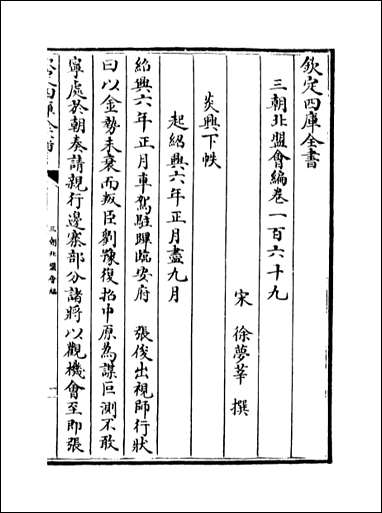 欽定四庫全書
三朝北盟會編卷一百六十九
宋 徐夢莘 撰
炎興下帙
起紹興六年正月盡九月
紹興六年正月車駕駐蹕臨安府 張俊出視師行狀
曰以金勢未衰而叛臣劉豫復据中原為謀叵測不敢
寧處於朝奏請親行邊寨部分諸將以觀機會至即張
三朝北盟會編